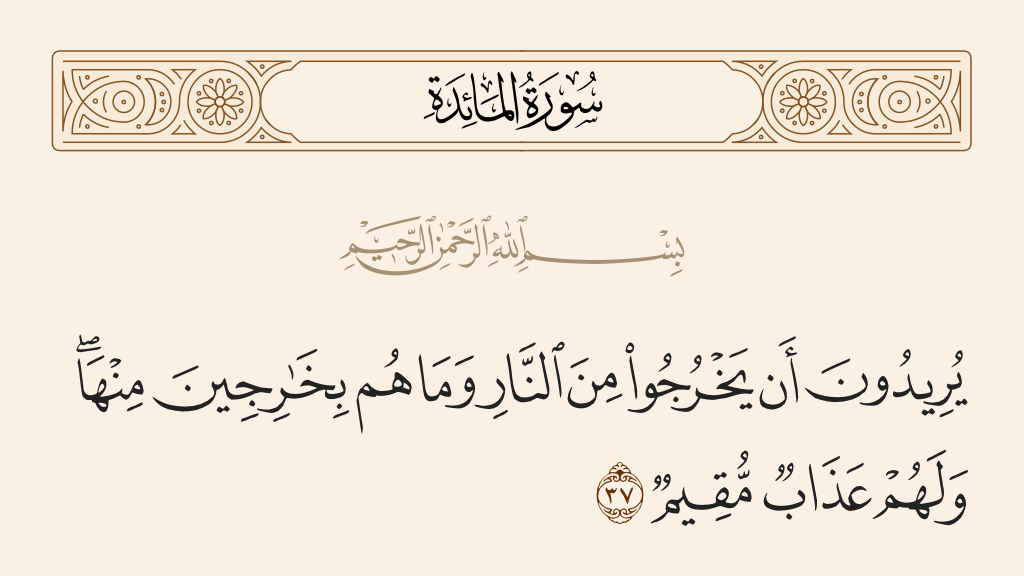 سُورَةُ المَائِدَةِ
بِسْمِ ٱللَّهِ ٱلرَّحْمَٰنِ ٱلرَّحِيمِ
يُرِيدُونَ أَن يَخْرُجُوا۟ مِنَ ٱلنَّارِ وَمَا هُم بِخَٰرِجِينَ مِنْهَا ۖ
وَلَهُمْ عَذَابٌ مُّقِيمٌ ٣٧